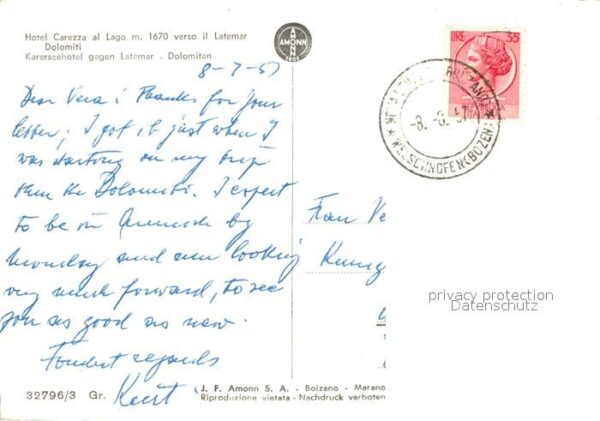 Hotel Carezza al Lago m. 1670 verso il Latemar
Dolomiti
Karerseehotel gegen Latemar - Dolomiten
AMONN
LIRE 35
8-7-57
Dear Vera! Thanks for your
letter; I got it just when I
was starting on my trip
thru the Dolomits. I expect
to be in by
monday and am looking
very much forward, to see
you as good as new.
Fondest regards
Kurt
Frau Ve
-8. 57
WELSCHNOFEN (BOZEN)
privacy protection
Datenschutz
32796/3 Gr.
J. F. Amonn S. A. - Bolzano - Merano
Riproduzione vietata - Nachdruck verboten